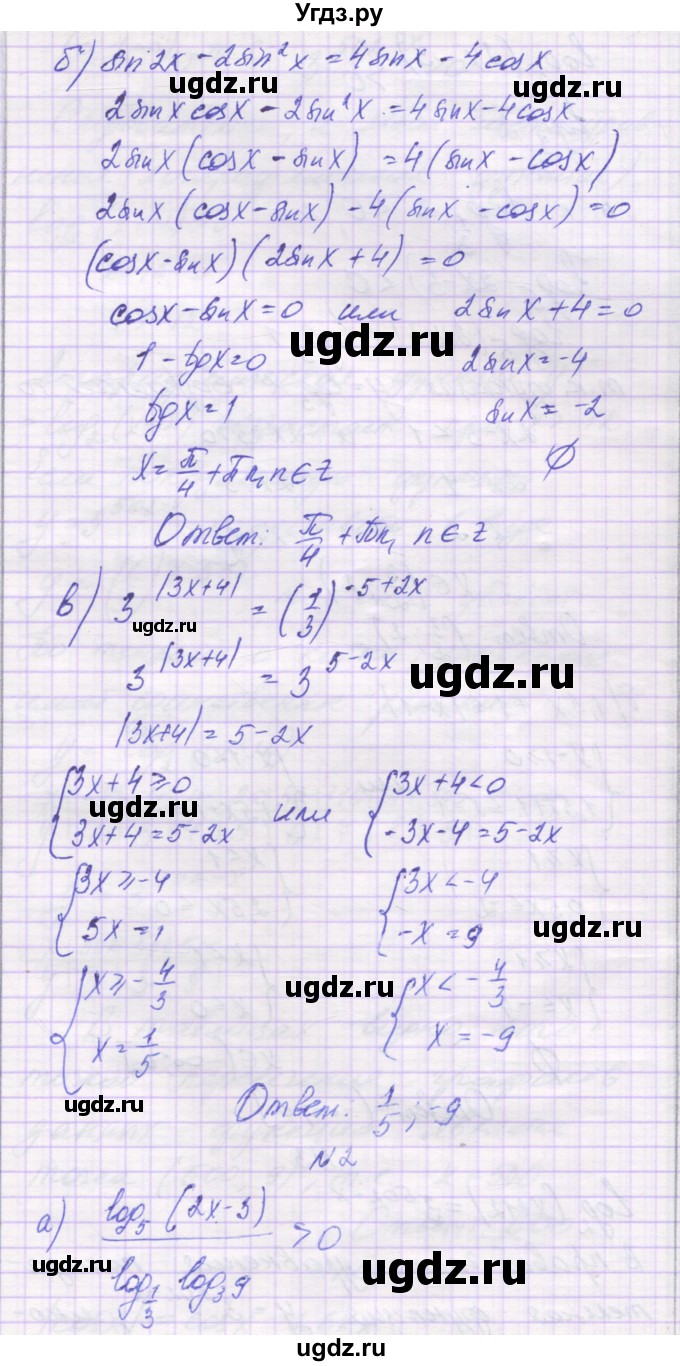 Угдз.ру
б) sin 2x - 2sin²x = 4sinx - 4cosx
ugdz.ru
2sinx cosx - 2sin²x = 4sinx - 4cosx
ugdz.ru
2sinx (cosx - sinx) = 4(sinx - cosx)
2sinx (cosx - sinx) - 4(sinx - cosx) = 0
(cosx - sinx)(2sinx + 4) = 0
cosx - sinx = 0 или 2sinx + 4 = 0
ugdz.ru
1 - tgx = 0 2sinx = -4
tgx = 1 sinx = -2
x = π/4 + πn, n ∈ Z ∅
Ответ: π/4 + πn, n ∈ Z
в) 3^|3x+4| = (1/3)^-5+2x
ugdz.ru
3^|3x+4| = 3^5-2x
ugdz.ru
|3x+4| = 5-2x
{3x+4 ≥ 0 или {3x+4 < 0
ugdz.ru
3x+4 = 5-2x -3x-4 = 5-2x
{3x ≥ -4 {3x < -4
5x = 1 -x = 9
ugdz.ru
{x ≥ -4/3 {x < -4/3
ugdz.ru
x = 1/5 x = -9
ugdz.ru
Ответ: 1/5; -9
№2
а) log₅(2x-3) / log_1/3 log₃9 > 0
ugdz.ru
ugdz.ru